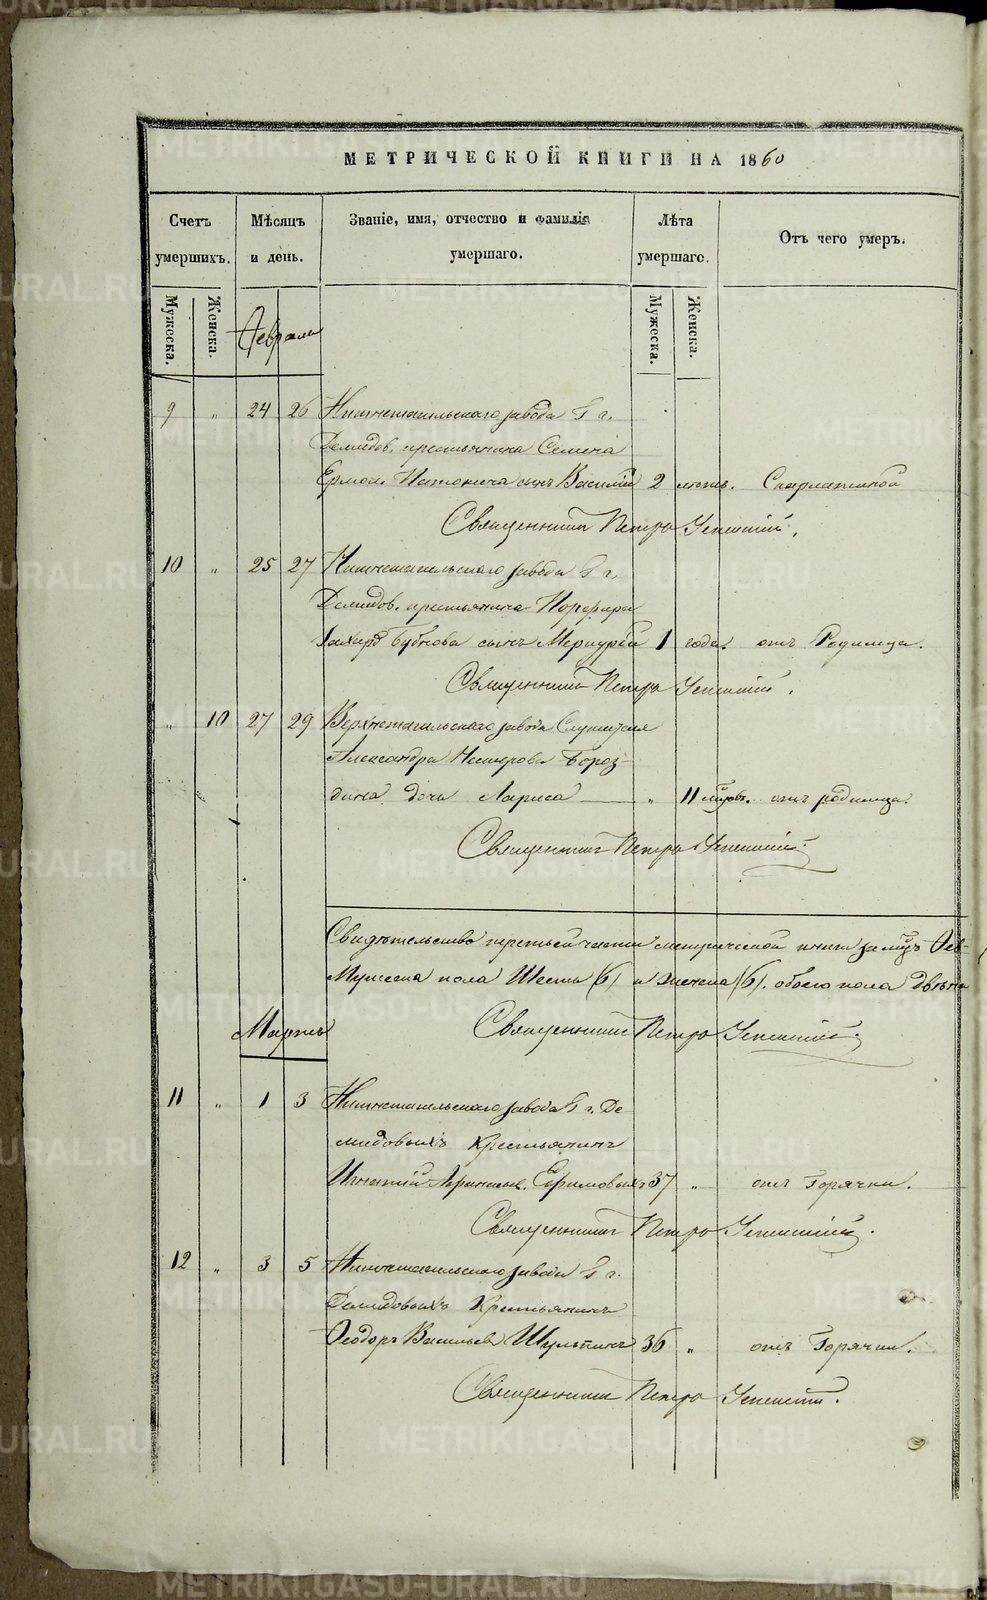 МЕТРИЧЕСКОЙ КНИГИ НА 1860
Счетъ умершихъ.
Мѣсяцъ и день.
Званіе, имя, отчество и фамилія умершаго.
Лѣта умершаго.
Отъ чего умеръ.
Мужеска.
Женска.
Мужеска.
Женска.
Февраль
9 " 24 26 Нижнетагильскаго завода Г г.
Демидов. крестьянина Семена
сынъ Василій 2 лѣтъ. Скарлатиной
Священникъ Петръ
10 " 25 27 Нижнетагильскаго завода Г г.
Демидов. крестьянина Порфира
Захаро Бубнова сынъ Меркурій 1 года. отъ Родимца.
Священникъ Петръ
" 10 27 29 Верхнетагильскаго завода Служителя
Александра Нестерова Бороз-
дина дочь Лариса " 11 отъ родимца.
Священникъ Петръ
Свидѣтельство третьей части метрической книги за мц Фев-
Мужеска пола Шесть (6) и женска (6). обоего пола
Священникъ Петръ
Мартъ
11 " 1 3 Нижнетагильскаго завода Г г. Де-
мидовыхъ Крестьянинъ
Игнатій Ефимовыхъ 37 " отъ Горячки.
Священникъ Петръ
12 " 3 5 Нижнетагильскаго завода Г г.
Демидовыхъ Крестьянинъ
Ѳеодоръ Васильев Шульпинъ 36 " отъ Горячки.
Священникъ Петръ
METRIKI.GASO-URAL.RU